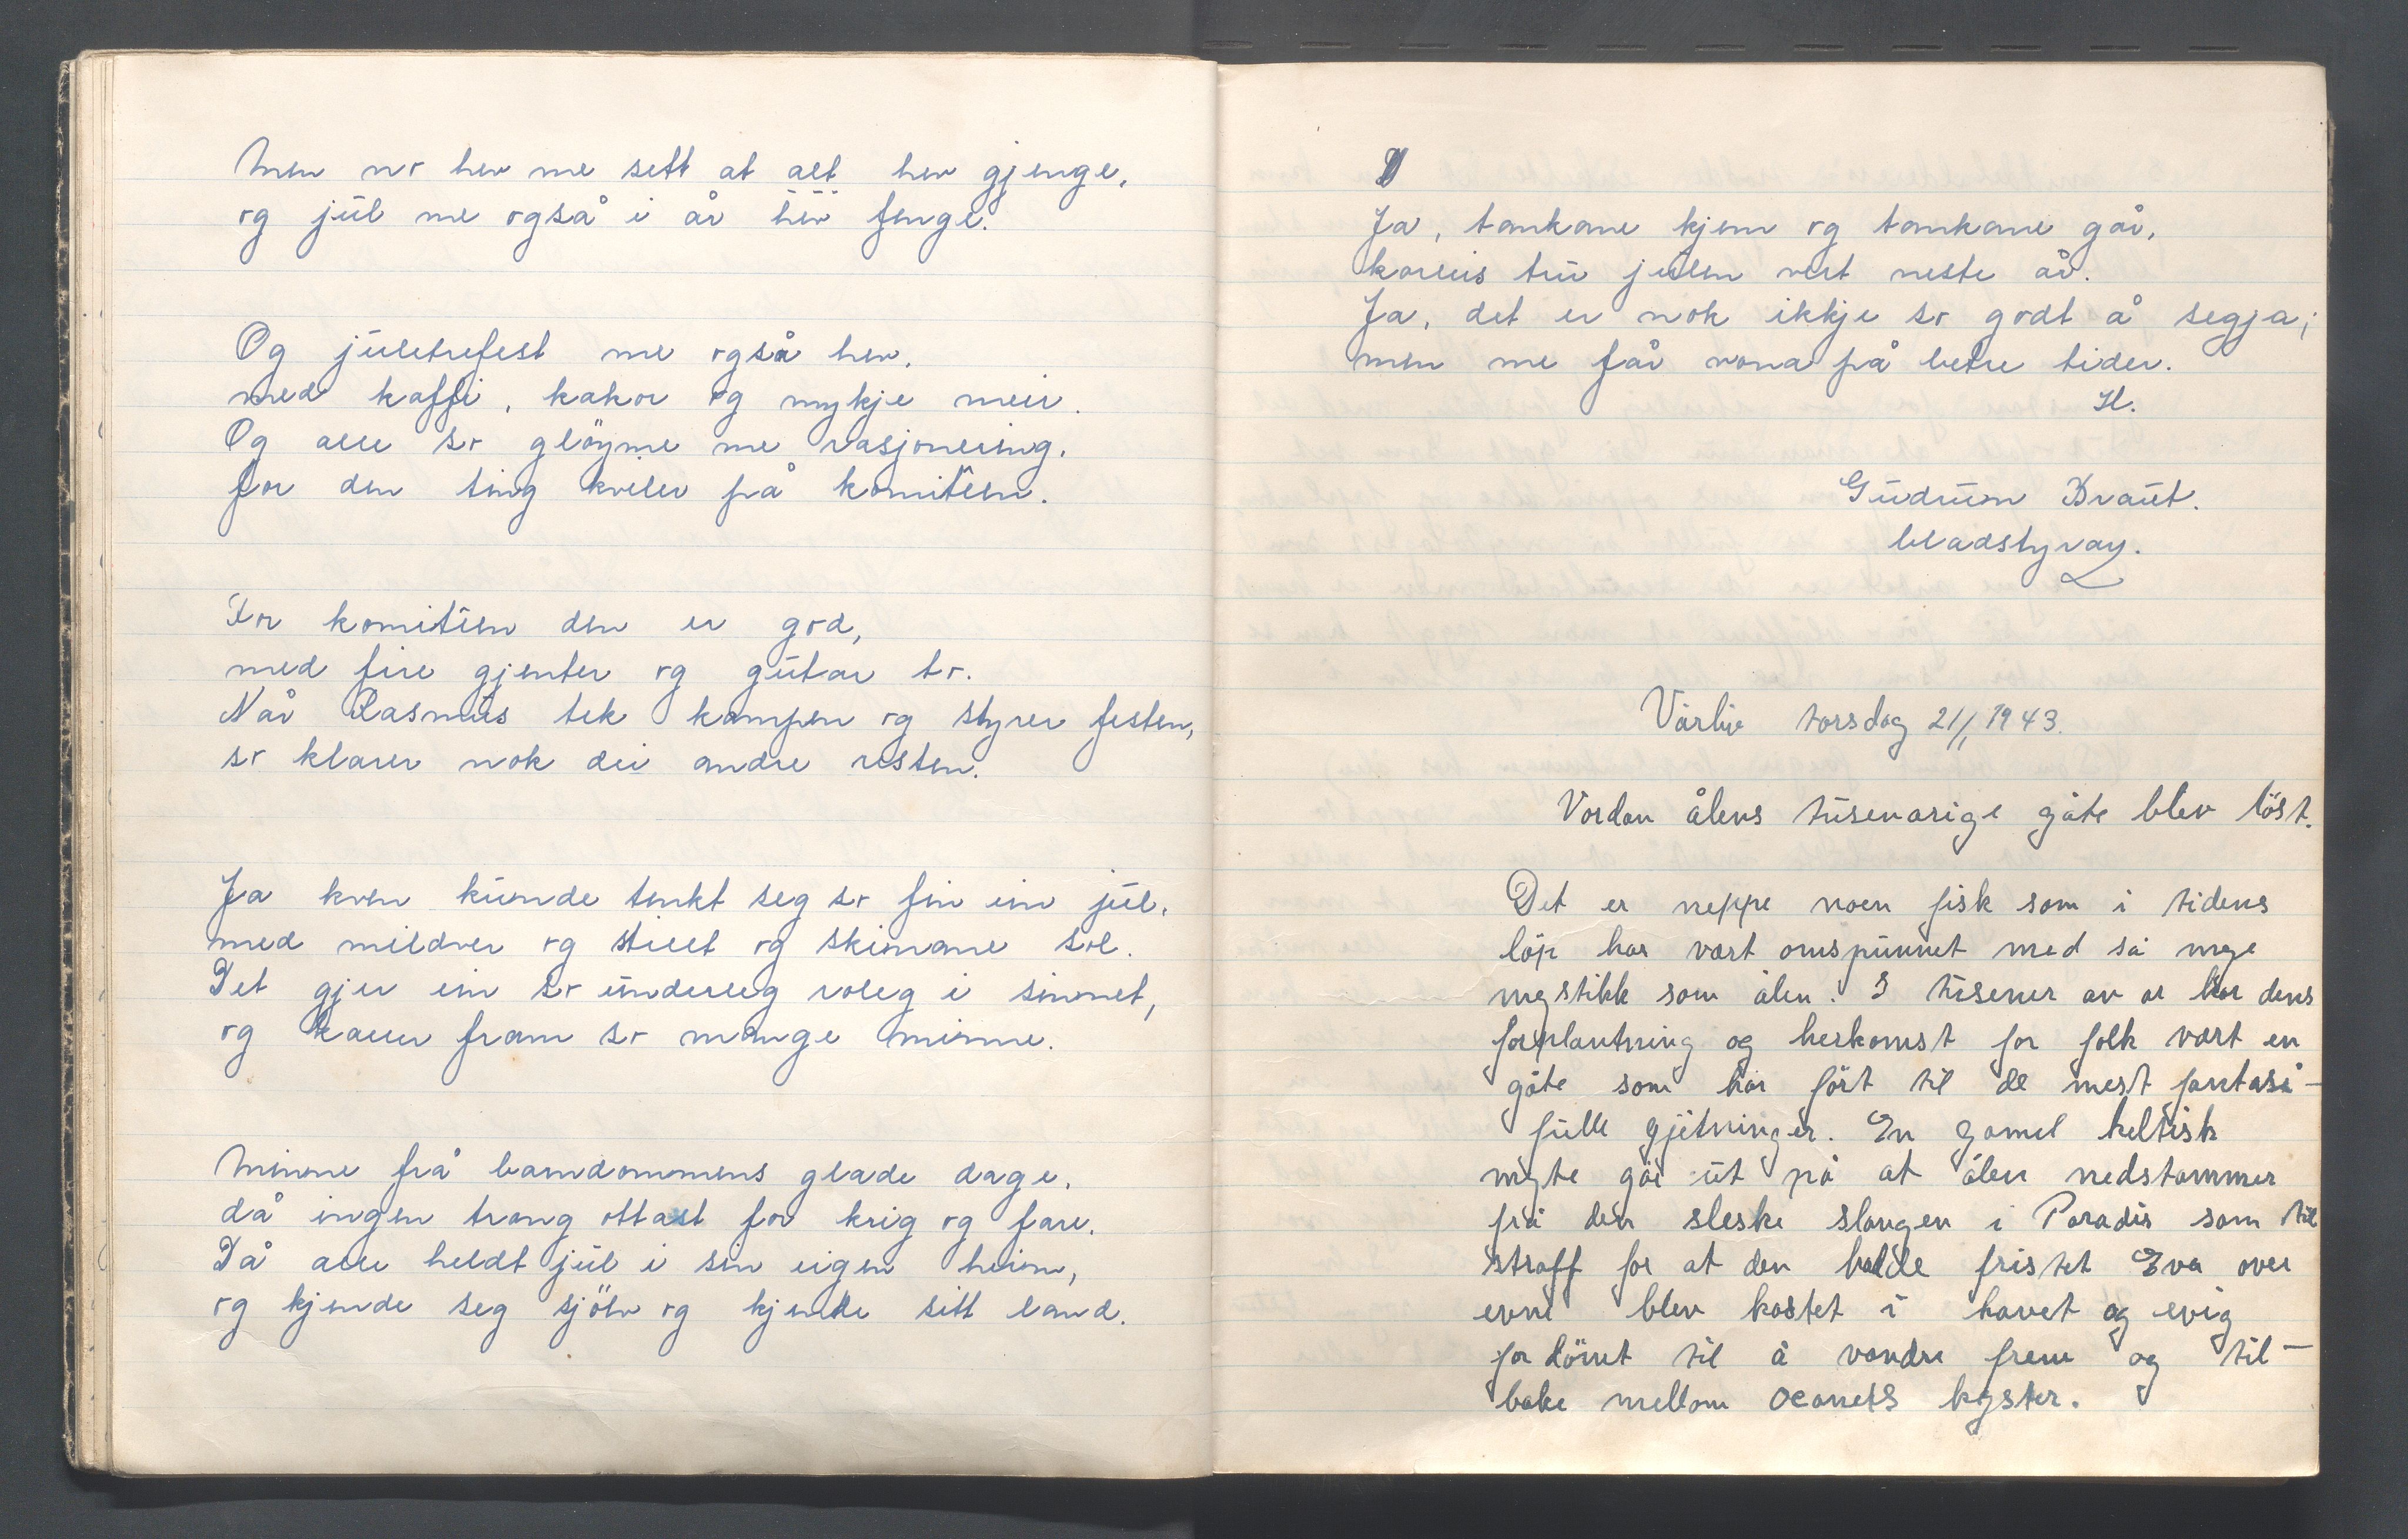 Men no hev me sett at alt hev gjenge,
og jul me også i år hev fenge.
Og juletrefest me også hev,
med kaffi, kakor og mykje meir.
Og alle so glöyme me rasjonering,
for den ting kviler på komitéen.
For komitéen den er god,
med fire gjenter og gutar to.
Når Rasmus tek kampen og styrer festen,
so klarer nok dei andre resten.
Ja kven kunde tenkt seg so fin ein jul,
med mildver og stillt og skinane sol.
Det gjer ein so underleg roleg i sinnet,
og kaller fram so mange minne.
Minne frå barndommens glade dage,
då ingen trong ottast for krig og fare.
Då alle heldt jul i sin eigen heim,
og kjende seg sjölv og kjende sitt land.
Ja, tankane kjem og tankane går,
korleis tru julen vert neste år.
Ja, det er nok ikkje so godt å segja;
men me får vona på betre tider.
H.
Gudrun Braut.
bladstyrar.
Vårliv torsdag 21/1 1943.
Vordan ålens tusenårige gåte blev löst.
Det er neppe noen fisk som i tidens
löp har vært omspunnet med så mye
mystikk som ålen. I tusener av år har dens
forplantning og herkomst for folk vært en
gåte som har fört til de mest fantasi-
fulle gjetninger. En gamel keltisk
myte går ut på at ålen nedstammer
frå den sleske slangen i Paradis som til
straff for at den hadde fristet Eva over
evne blev kastet i havet og evig
fordömt til å vandre frem og til-
bake mellom oceanets kyster.